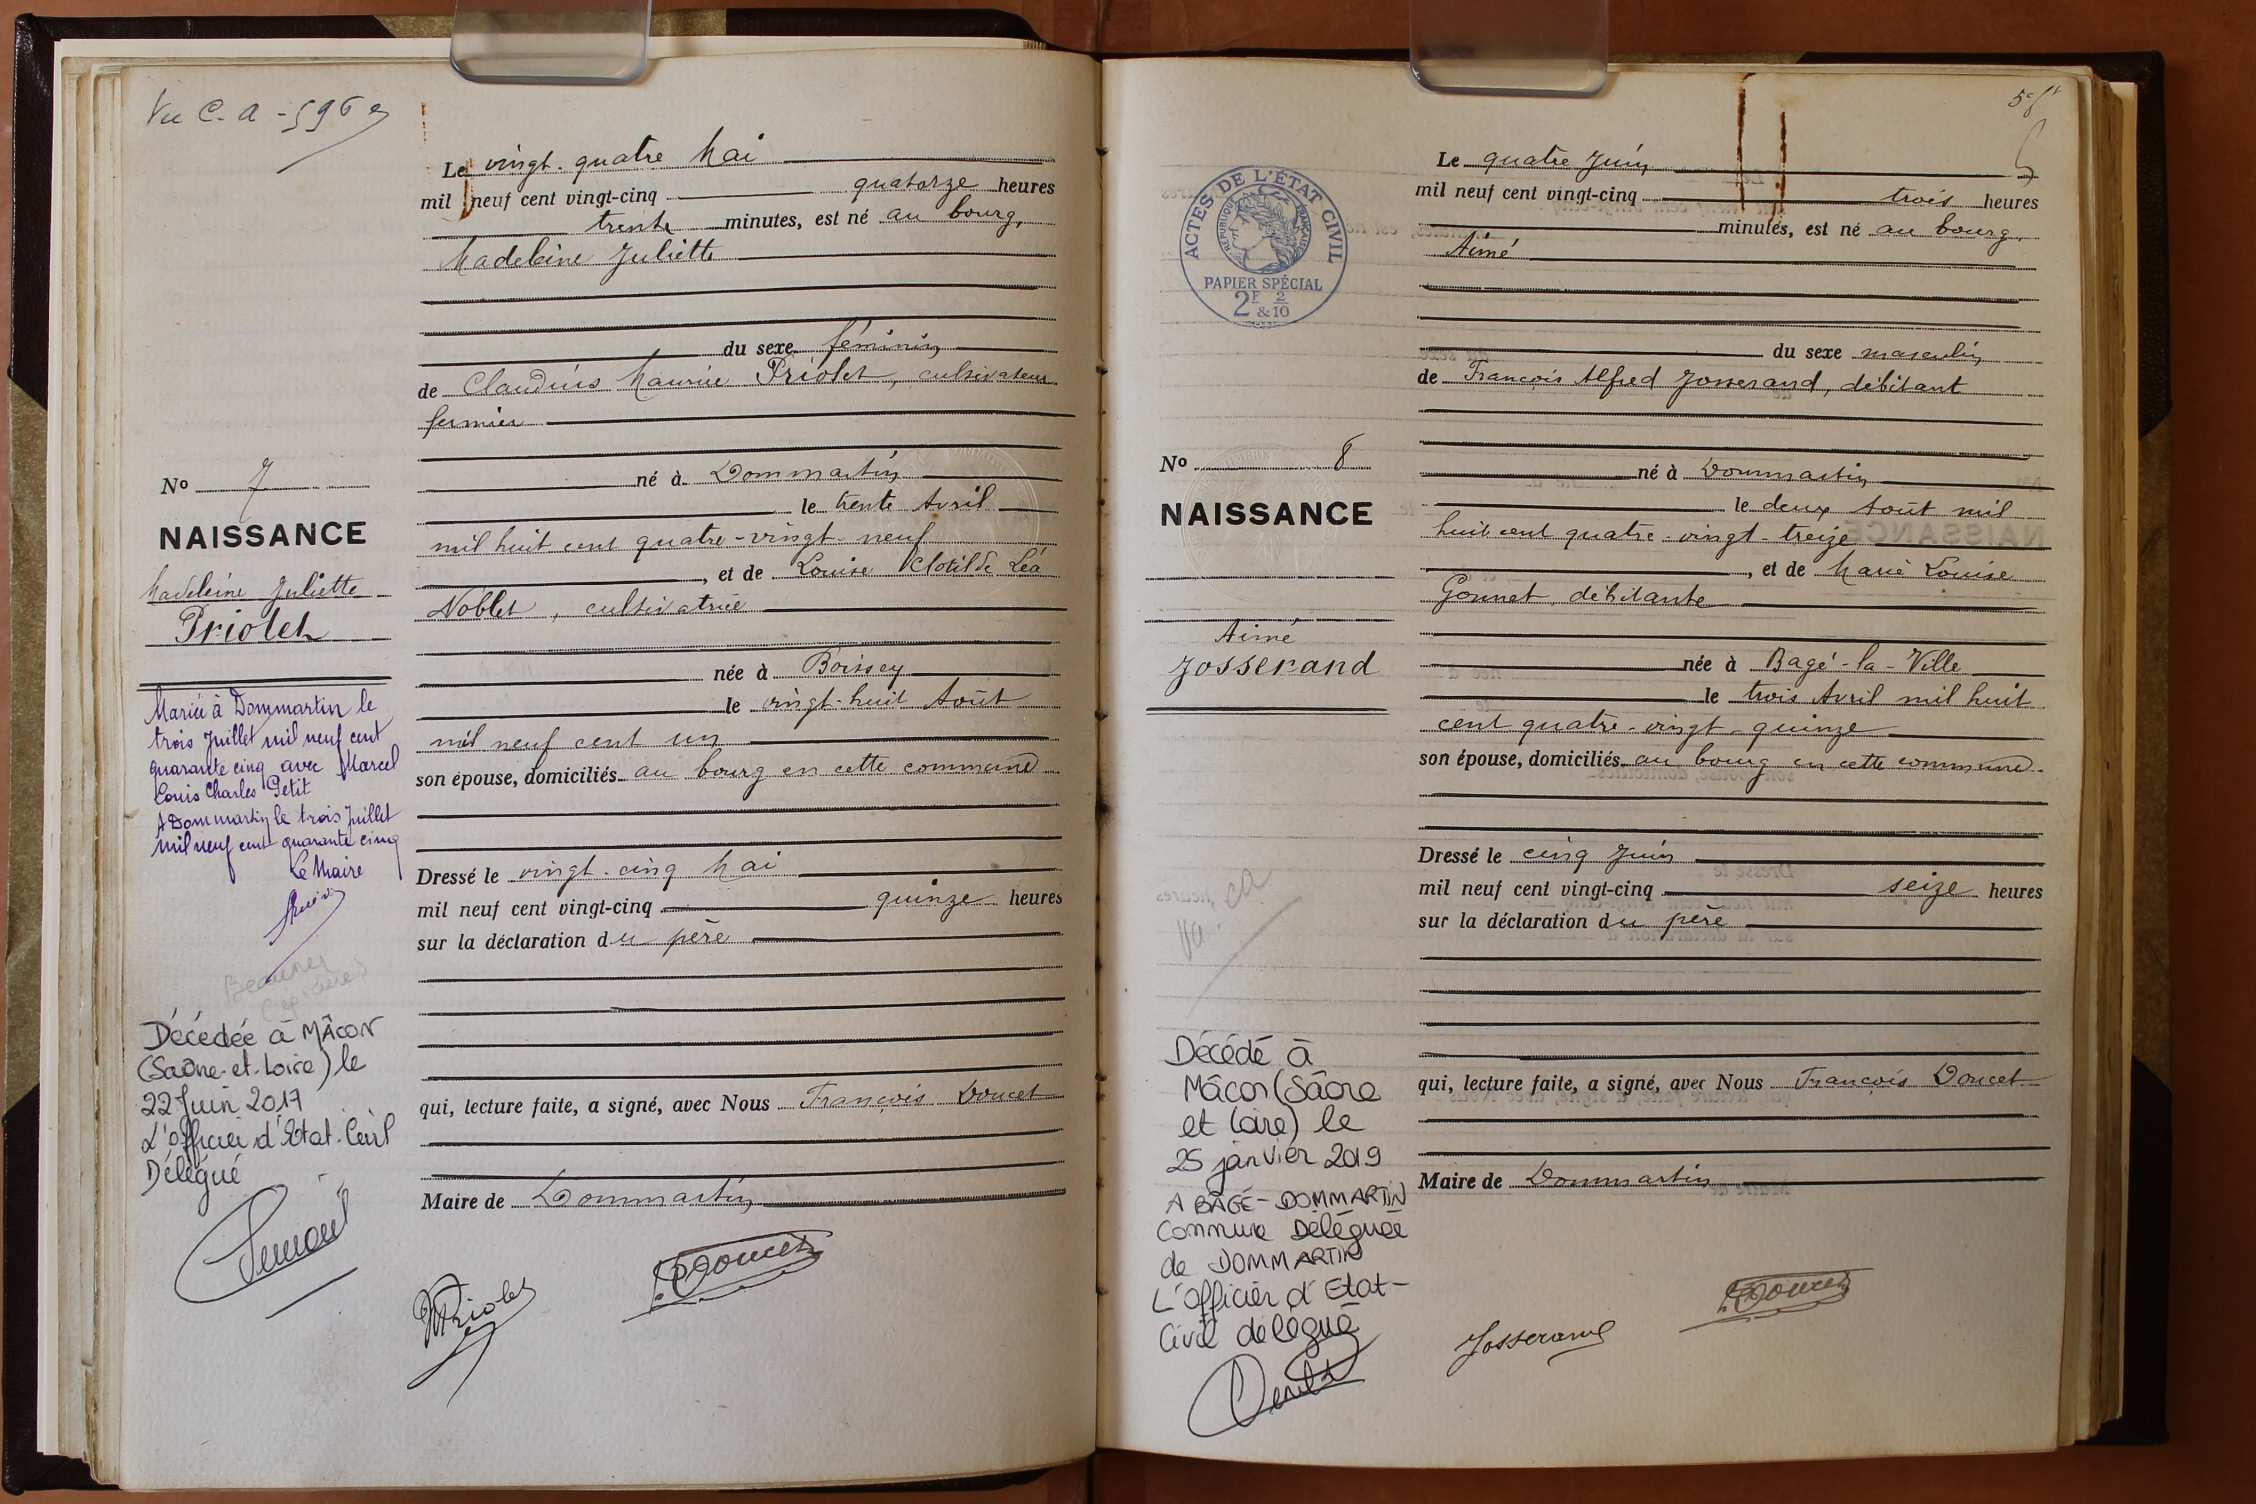 Vu C. A - 596
Le vingt-quatre Mai
mil neuf cent vingt-cinq quatorze heures
trente minutes, est né au bourg,
Madeleine Juliette
du sexe féminin
de Claudius Maurice Priolet, cultivateur
fermier
né à Dommartin
le trente Avril
mil huit cent quatre-vingt-neuf
, et de Louise Clotilde Léa
Noblet, cultivatrice
née à Boissey
le vingt-huit Août
mil neuf cent un
son épouse, domiciliés au bourg en cette commune
Dressé le vingt-cinq Mai
mil neuf cent vingt-cinq quinze heures
sur la déclaration du père
qui, lecture faite, a signé, avec Nous François Doucet
Maire de Dommartin
Priolet
Doucet
No 7
NAISSANCE
Madeleine Juliette
Priolet
Mariée à Dommartin le
trois Juillet mil neuf cent
quarante cinq avec Marcel
Louis Charles Petit
A Dommartin le trois Juillet
mil neuf cent quarante cinq
Le Maire
Décédée à MÂCON
(Saône-et-Loire) le
22 Juin 2017
L'officier d'Etat-Civil
Délégué
5e ft
ACTES DE L'ÉTAT CIVIL
RÉPUBLIQUE FRANÇAISE
PAPIER SPÉCIAL
2F & 2/10
Le quatre Juin
mil neuf cent vingt-cinq trois heures
minutes, est né au bourg,
Aimé
du sexe masculin
de François Alfred Josserand, débitant
né à Dommartin
le deux Août mil
huit cent quatre-vingt-treize
, et de Marie Louise
Gonnet, débitante
née à Bagé-la-Ville
le trois Avril mil huit
cent quatre-vingt-quinze
son épouse, domiciliés au bourg en cette commune.
Dressé le cinq Juin
mil neuf cent vingt-cinq seize heures
sur la déclaration du père
qui, lecture faite, a signé, avec Nous François Doucet
Maire de Dommartin
Josserand
Doucet
No 8
NAISSANCE
Aimé
Josserand
Décédé à
Mâcon (Sâone
et Loire) le
25 janvier 2019
A BÂGÉ-DOMMARTIN
Commune Déléguée
de DOMMARTIN
L'officier d'Etat-
Civil délégué